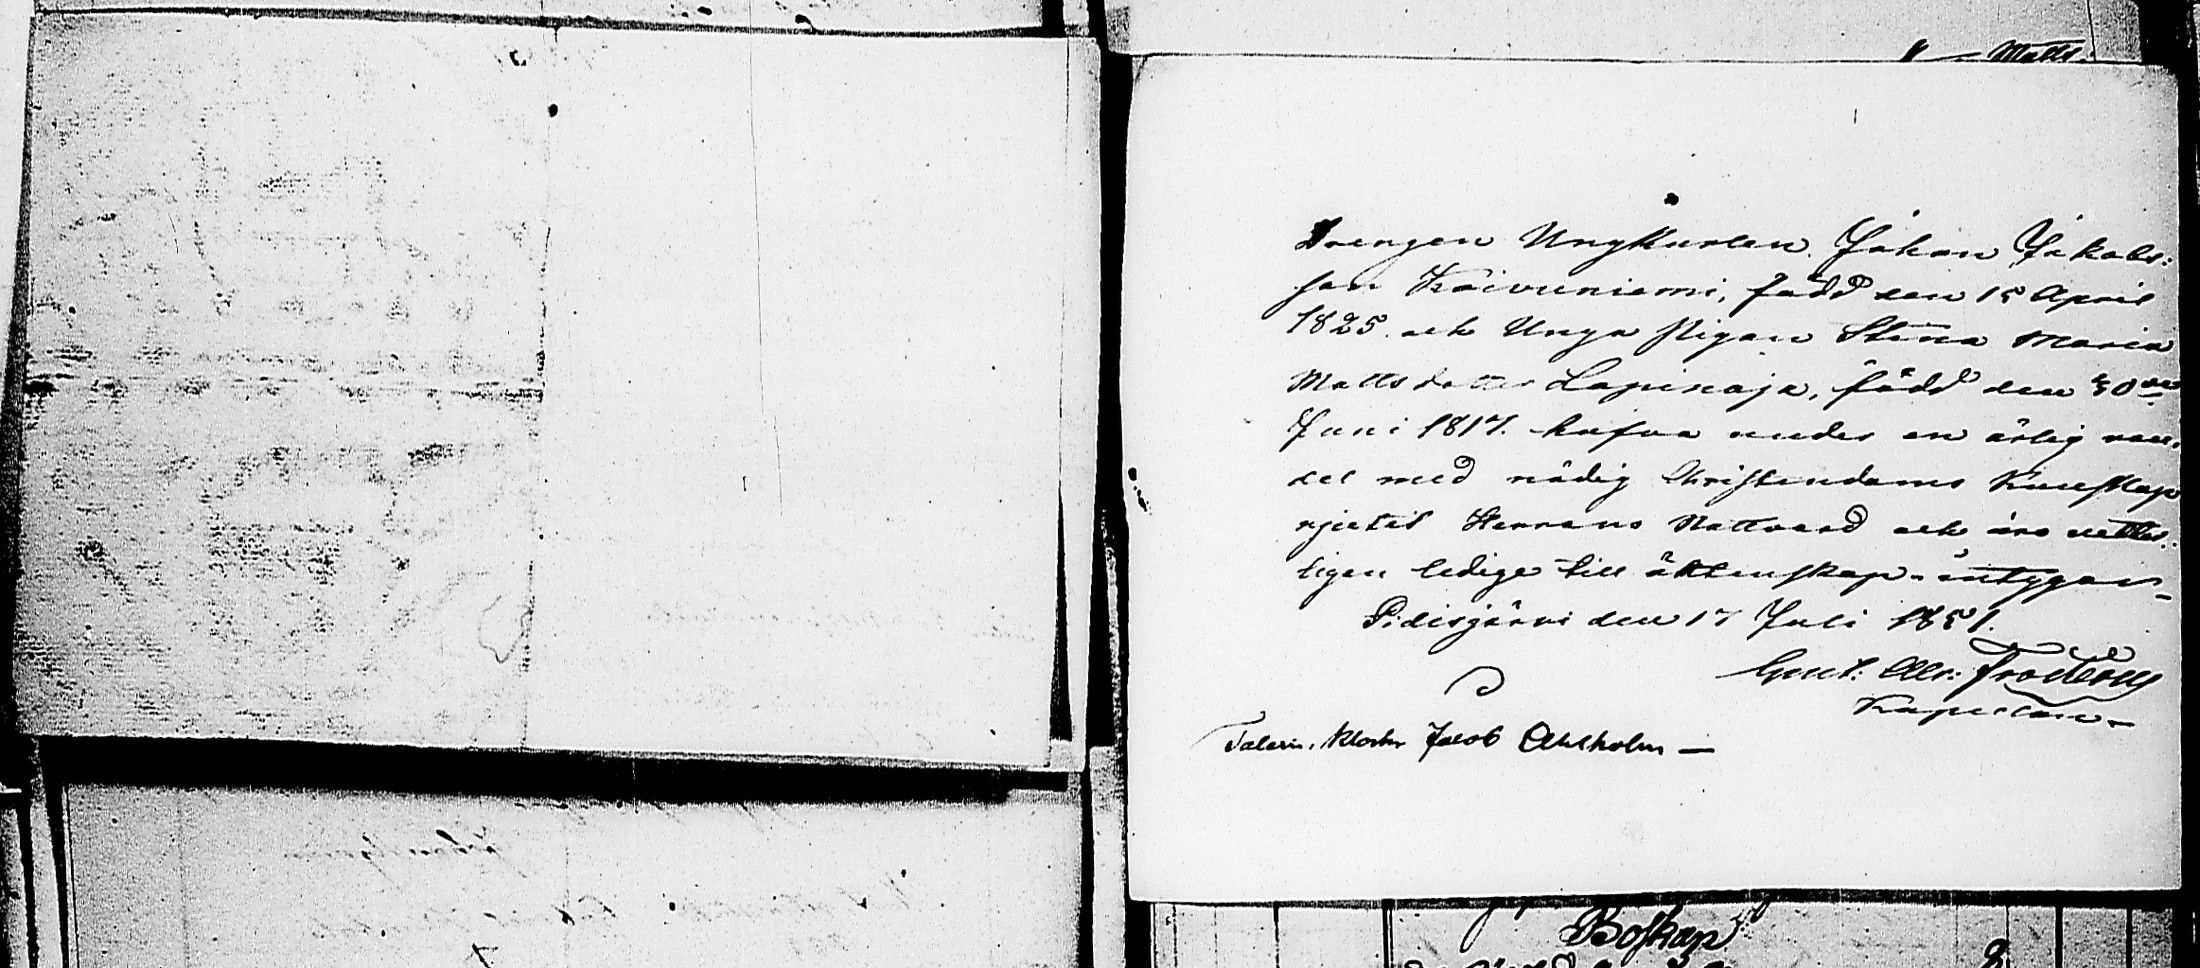 Matts
Drengen Ungkarlen Johan Jakobs:
son Koivuniemi, född den 15 April
1825. och Unga Pigan Stina Maria
Matts dotter Lapinoja, född den 30de
Juni 1817. hafva under en ärlig van,
del med nödig Christendoms Kunskap
njutit Herrans Nattvard och äro veitter:
ligen ledige till äktenskap - intygar -
Pidisjärvi den 17 Juli 1851.
Gust: Alr: Frosterus
Kapellan -
Jacob Ahlholm -
Boskap